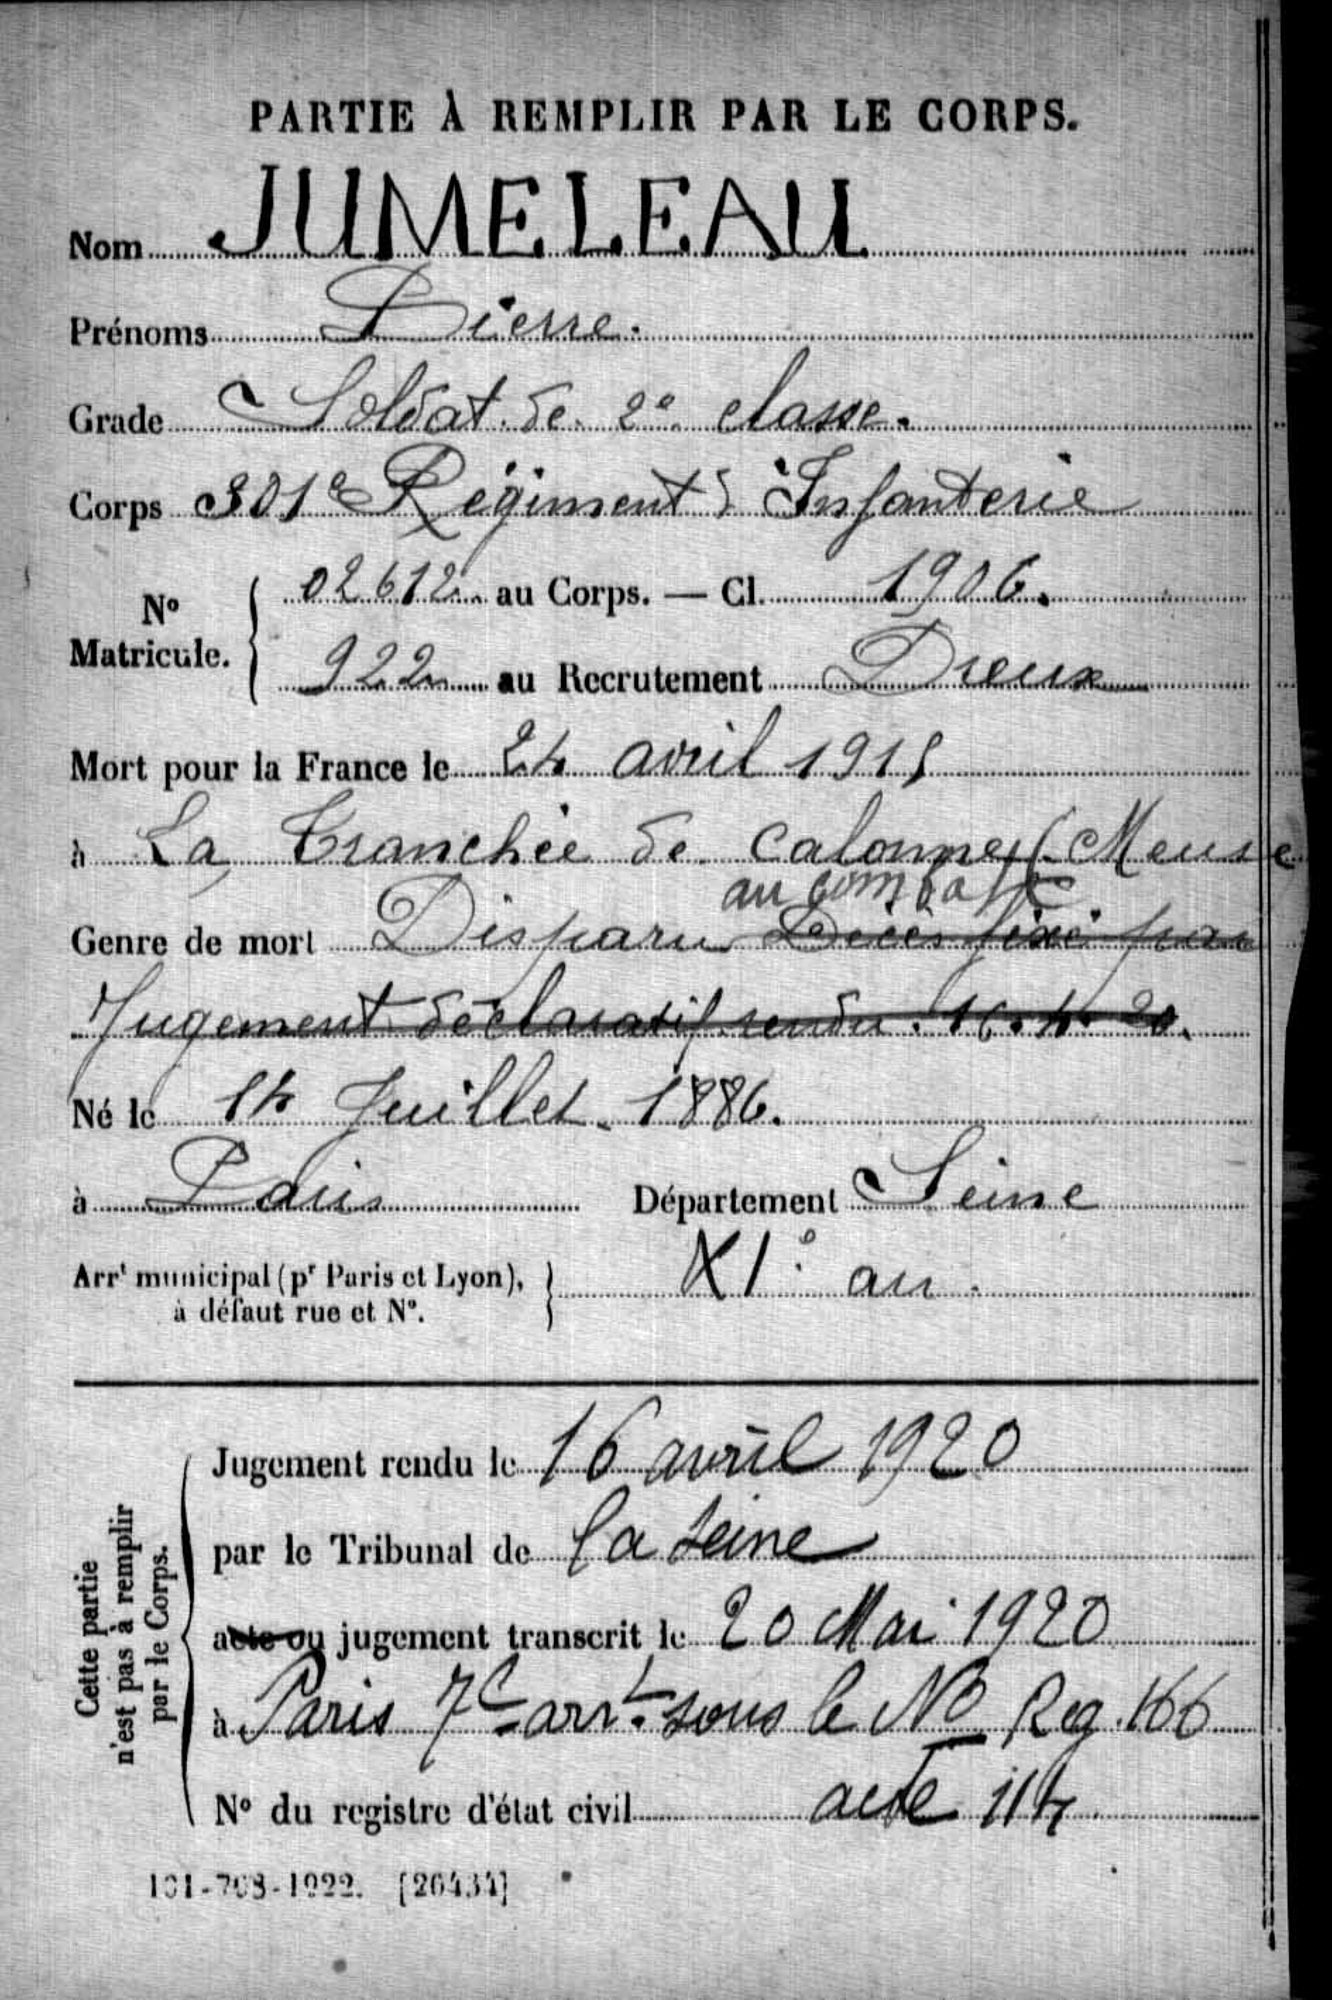 PARTIE À REMPLIR PAR LE CORPS.
Nom JUMELEAU
Prénoms Pierre.
Grade Soldat de 2e classe.
Corps 301e Régiment d'Infanterie
N° Matricule. 02612 au Corps. — Cl. 1906.
922 au Recrutement Dreux
Mort pour la France le 24 avril 1915
à La Tranchée de Calonne (Meuse
au combat
Genre de mort Disparu Décès fixé par
Jugement déclaratif rendu. 16.4.20.
Né le 14 Juillet 1886.
à Paris Département Seine
Arrt municipal (pr Paris et Lyon), à défaut rue et N°. XIe arr.
Cette partie n'est pas à remplir par le Corps.
Jugement rendu le 16 avril 1920
par le Tribunal de la Seine
acte ou jugement transcrit le 20 Mai 1920
à Paris 7e arrt sous le No Reg. 166
N° du registre d'état civil acte 114
101-708-1922. [26434]